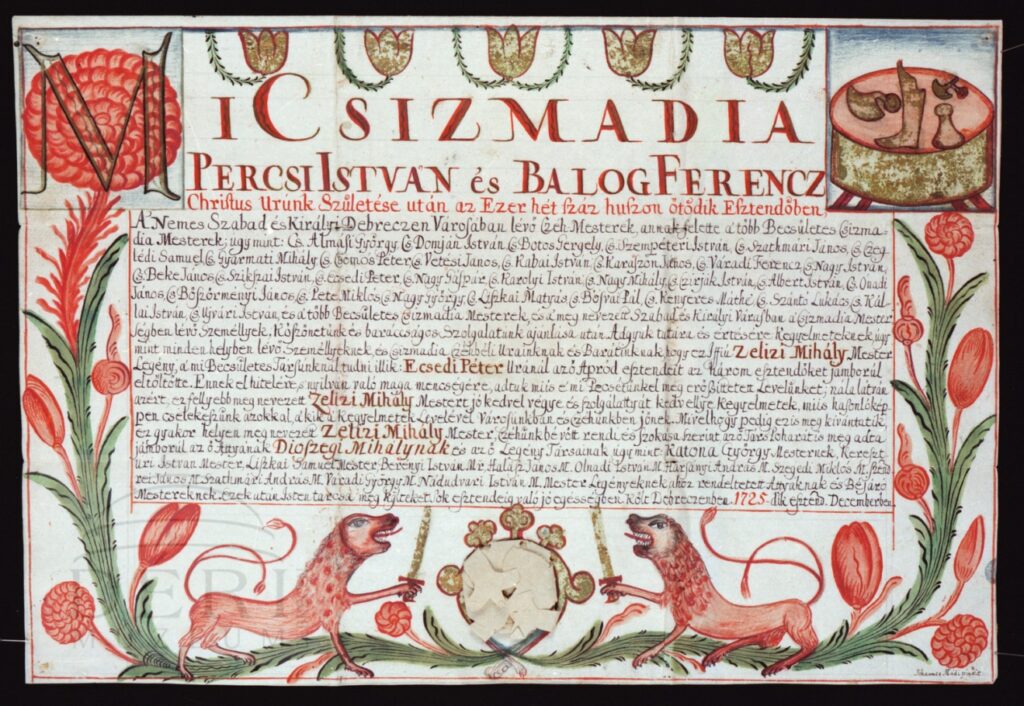 MI CSIZMADIA
PERCSI ISTVÁN és BALOG FERENCZ
Christus Urunk Születése után az Ezer hét száz huszon ötödik Esztendőben
A' Nemes Szabad és Királyi Debreczen Városában lévő Czeh Mesterek, annak felette a' több Becsületes Csizma-
dia Mesterek, ugy mint: Cs. Almási György, Cs. Domján István, Cs. Botos Gergely, Cs. Szempéteri István, Cs. Szathmári János, Cs. Czeg-
lédi Samuel, Cs. Gyarmati Mihály, Cs. Csomós Péter, Cs. Vetési János, Cs. Kabai István, Cs. Karászon János, Cs. Váradi Ferencz, Cs. Nagy István,
Cs. Beke János, Cs. Szikszai István, Cs. Ecsedi Peter, Cs. Nagy Gáspár, Cs. Karolyi István, Cs. Nagy Mihály, Cs. Zirják István, Cs. Albert István, Cs. Onadi
János, Cs. Böszörményi János, Cs. Pete Miklós, Cs. Nagy György, Cs. Liszkai Matyas, Cs. Bosvai Pál, Cs. Kenyeres Máthé, Cs. Szántó Lukács, Cs. Kál-
lai István, Cs. Ujvári István, és a' több Becsületes Csizmadia Mesterek, és a' meg nevezett Szabad és Királyi Városban a' Csizmadia Mester-
ségben lévő Személlyek, Köszönetünk és barácságos Szolgalatunk ajánlása után. Adgyuk tudtára és értésére Kegyelmeteknek, ugy
mint minden helyben lévő Személlyeknek, és Csizmadia Czehbéli Urainknak és Barátinknak hogy ez Iffiú Zelizi Mihály Mester
Legény, a' mi Becsületes Társunknál tudni illik: Ecsedi Péter Uránál az ő Apród esztendeit az Három esztendőket jámborúl
el töltötte. Ennek el hitelére, s nyilván való maga mencségére, adtuk mi is e' mi Pecsetünkel meg erőssitteten Levelünket; nála látván
azért, ez fellyebb meg nevezett Zelizi Mihály Mestert jó kedvel végye és szolgálattyát kedvellye Kegyelmetek, mi is hasonlóké-
pen cselekeszünk azokkal, a' kik a' Kegyelmetek Levelével Városunkban és Czehünkben jönek. Mivelhogy pedig ez is meg kivántatik,
ez gyakor helyen meg nevezet Zelizi Mihály Mester, Czehünk bé vött rendi és szokása szerint az ő Társ poharát is meg adta
jámborul az ő Attyának Dioszegi Mihálynak és az ő Legény Társainak ugy mint: Katona György Mesternek, Kereszt-
uri István Mester, Liszkai Samuel Mester, Berényi István Mr. Halász János M. Olnadi István M. Harsányi András M. Szegedi Miklós M. Szend-
rei János M. Szathmári András M. Váradi György M. Nadudvari István M. Mester Legényeknek ahoz rendeltetet Attyáknak és Béjáró
Mestereknek. ezek után Isten tarcsa meg Kjteket. sok esztendeig való jó egyességben. Költ Debreczenben. 1725-dik eszténd. Decemberben.